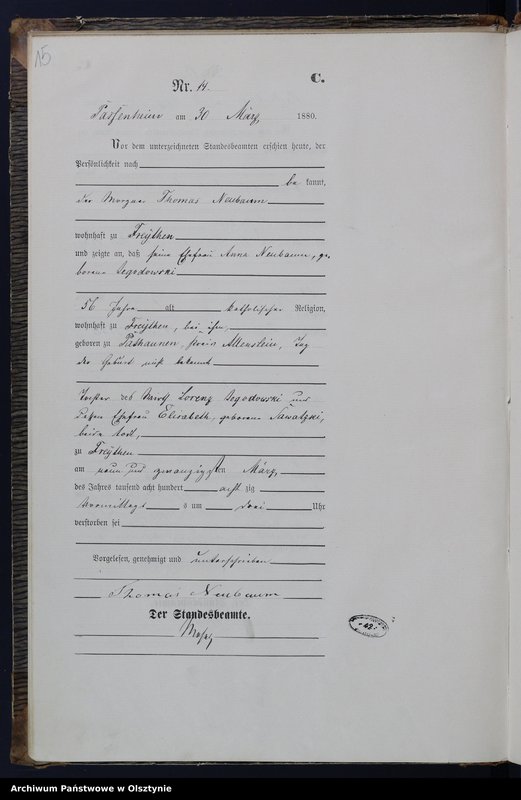 15
C.
Nr. 14.
Passenheim am 30 März 1880.
Vor dem unterzeichneten Standesbeamten erschien heute, der
Persönlichkeit nach
be kannt,
der Thomas Neubaum
wohnhaft zu Freÿthen
und zeigte an, daß seine Ehefrau Anna Neubaum, ge¬
borene Segodowski
56 Jahre alt katholischer Religion,
wohnhaft zu Freÿthen, bei ihm,
geboren zu Kreis Allenstein, Tag
der Geburt nicht bekannt
Tochter des Lorenz Segodowski und
dessen Ehefrau Elisabeth, geborene Sawatzki,
beide todt,
zu Freÿthen
am neun und zwanzigsten März
des Jahres tausend acht hundert acht zig
Vormittags s um drei Uhr
verstorben sei
Vorgelesen, genehmigt und unterschrieben
Thomas Neubaum
Der Standesbeamte.
- 42 -
Archiwum Państwowe w Olsztynie